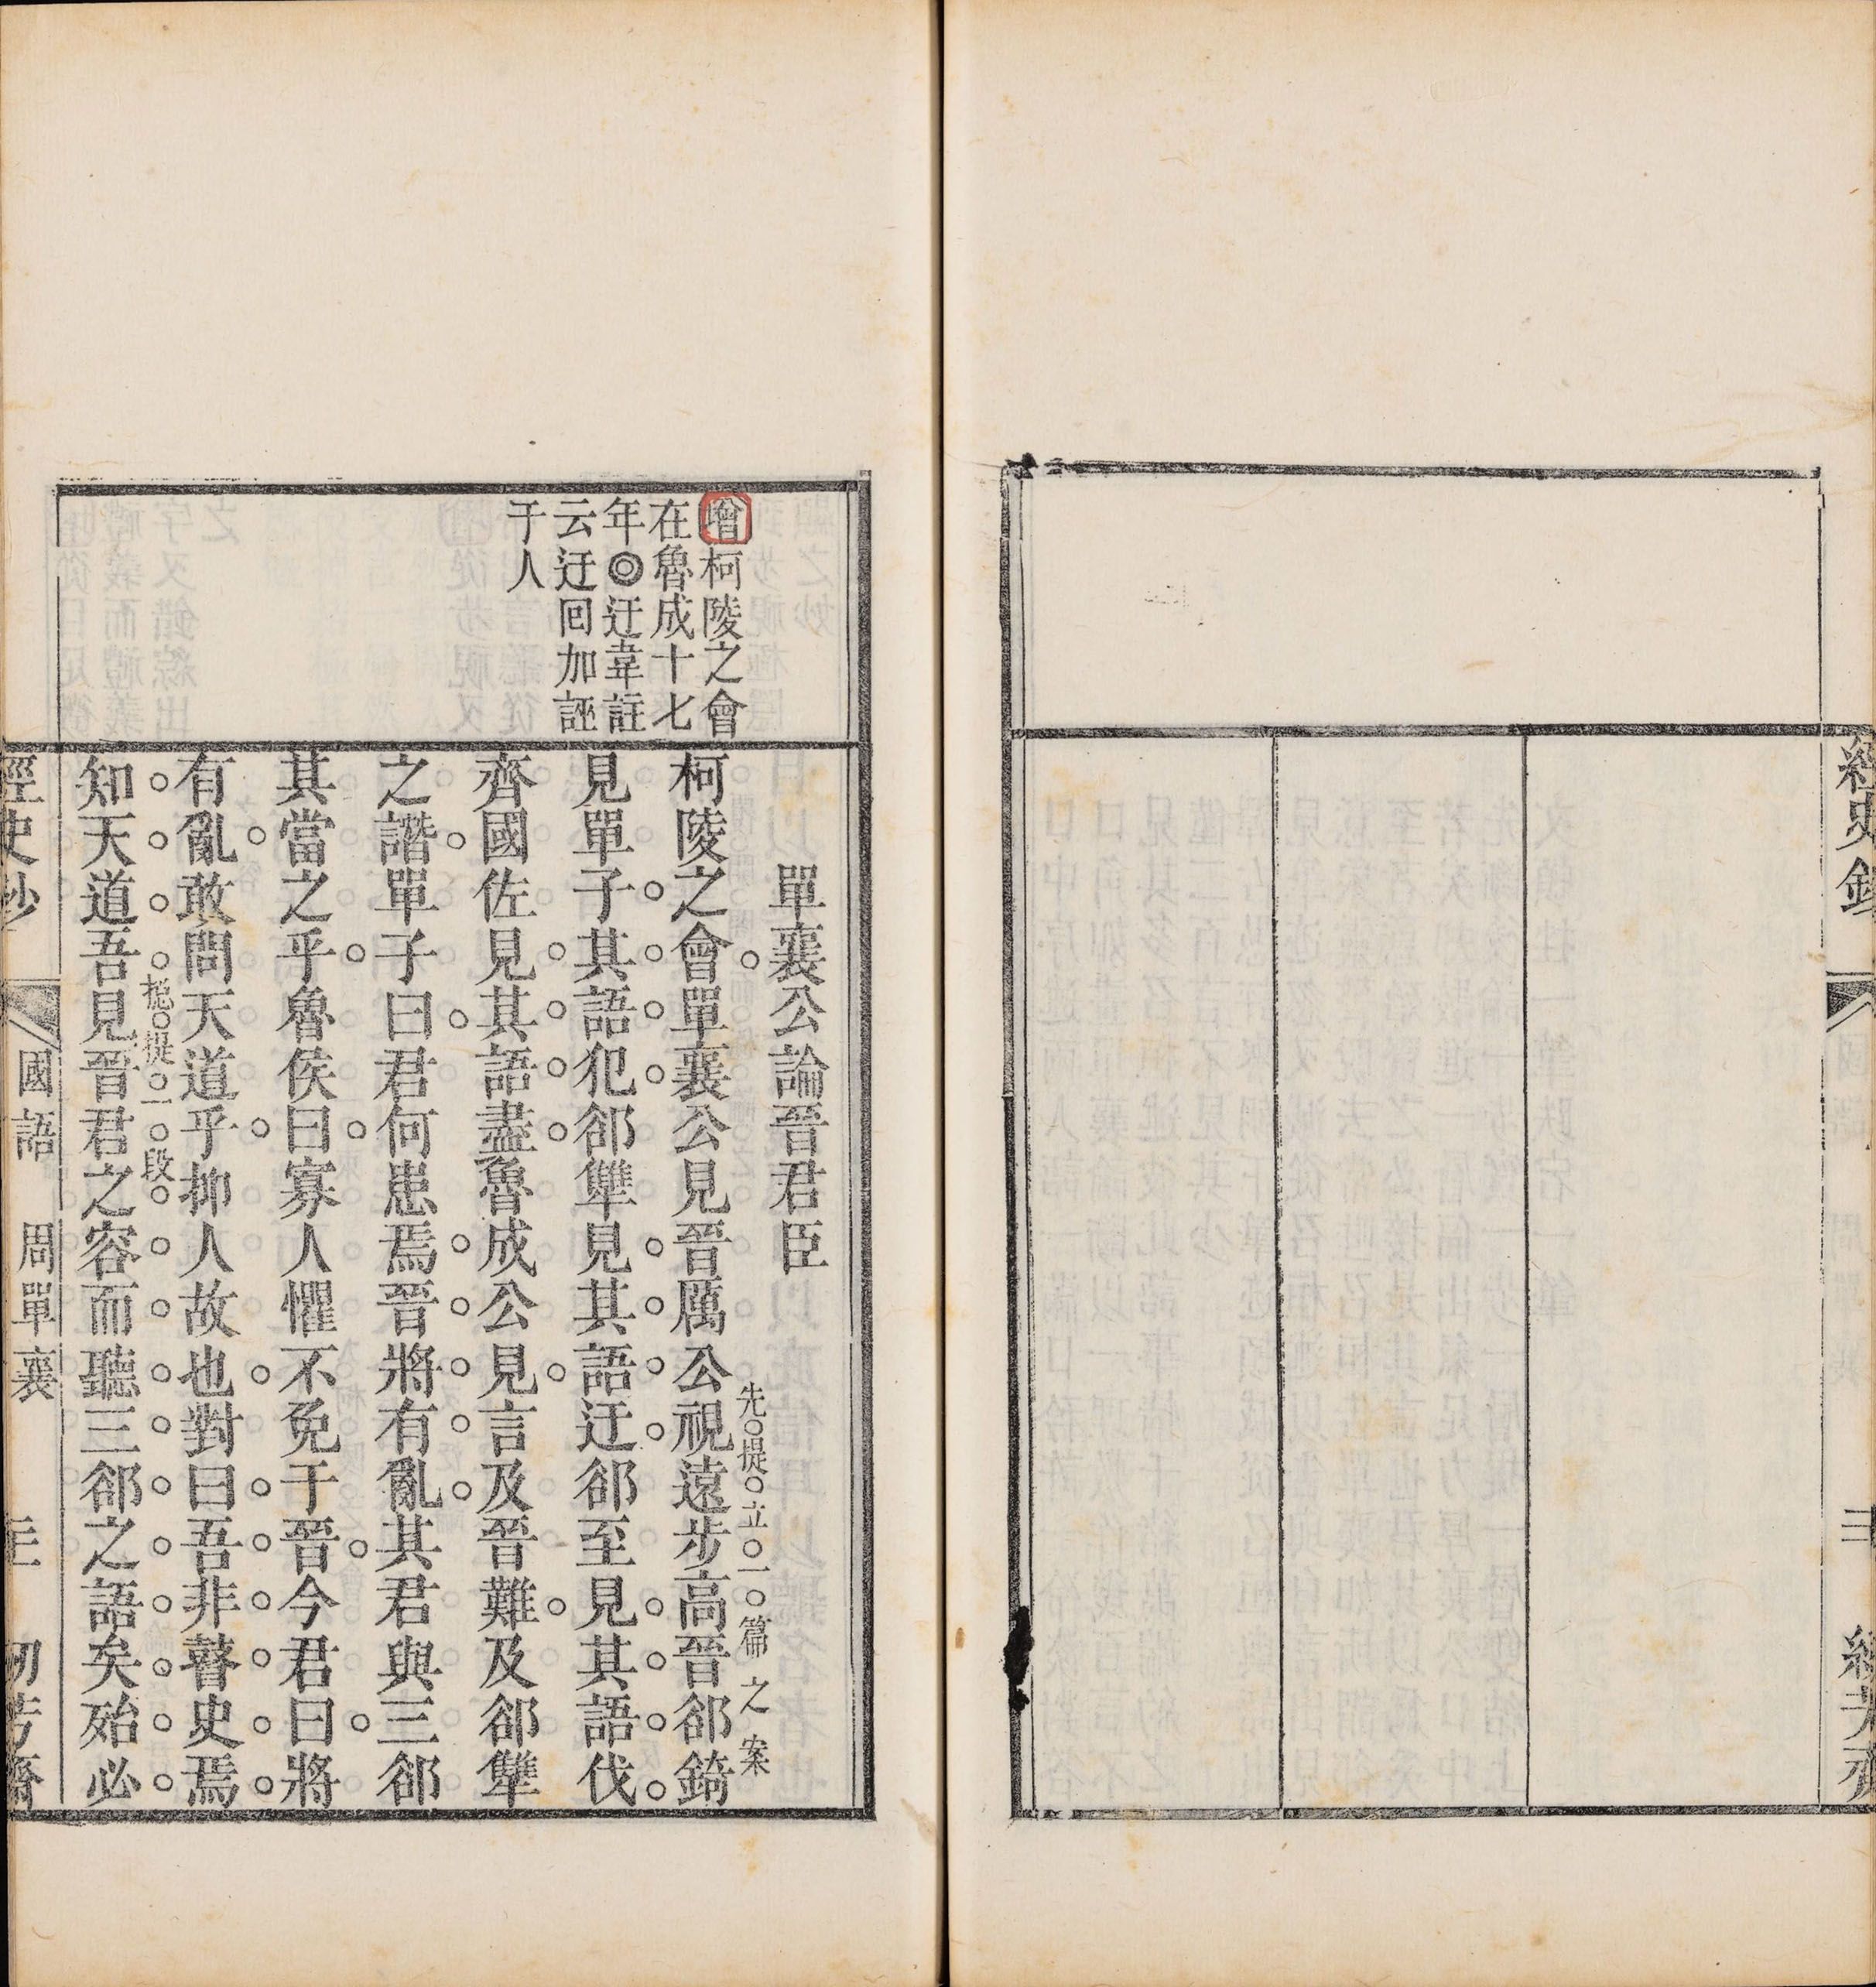 經史鈔
單襄公論晉君臣
柯陵之會單襄公見晉厲公視遠步高晉郤錡
先提立一篇之案
見單子其語犯郤犨見其語迂郤至見其語伐
齊國佐見其語盡魯成公見言及晉難及郤犨
之譖單子曰君何患焉晉將有亂其君與三郤
其當之乎魯侯曰寡人懼不免于晉今君曰將
有亂敢問天道乎抑人故也對曰吾非瞽史焉
知天道吾見晉君之容而聽三郤之語矣殆必
提一段
增柯陵之會
在魯成十七
年◎迂韋註
云迂回加誣
于人
經史鈔
國語 周單襄
芳齋